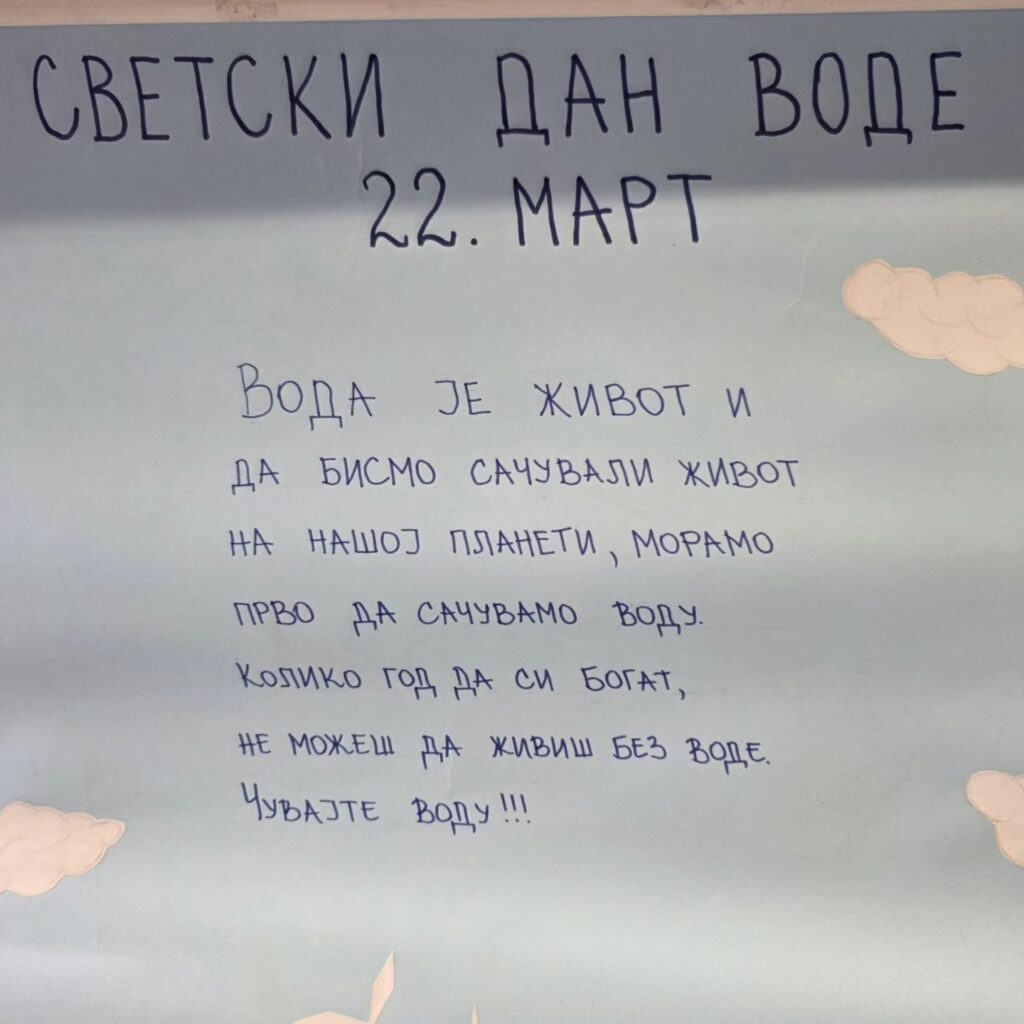 СВЕТСКИ ДАН ВОДЕ
22. МАРТ
ВОДА ЈЕ ЖИВОТ И
ДА БИСМО САЧУВАЛИ ЖИВОТ
НА НАШОЈ ПЛАНЕТИ, МОРАМО
ПРВО ДА САЧУВАМО ВОДУ.
КОЛИКО ГОД ДА СИ БОГАТ,
НЕ МОЖЕШ ДА ЖИВИШ БЕЗ ВОДЕ.
ЧУВАЈТЕ ВОДУ!!!